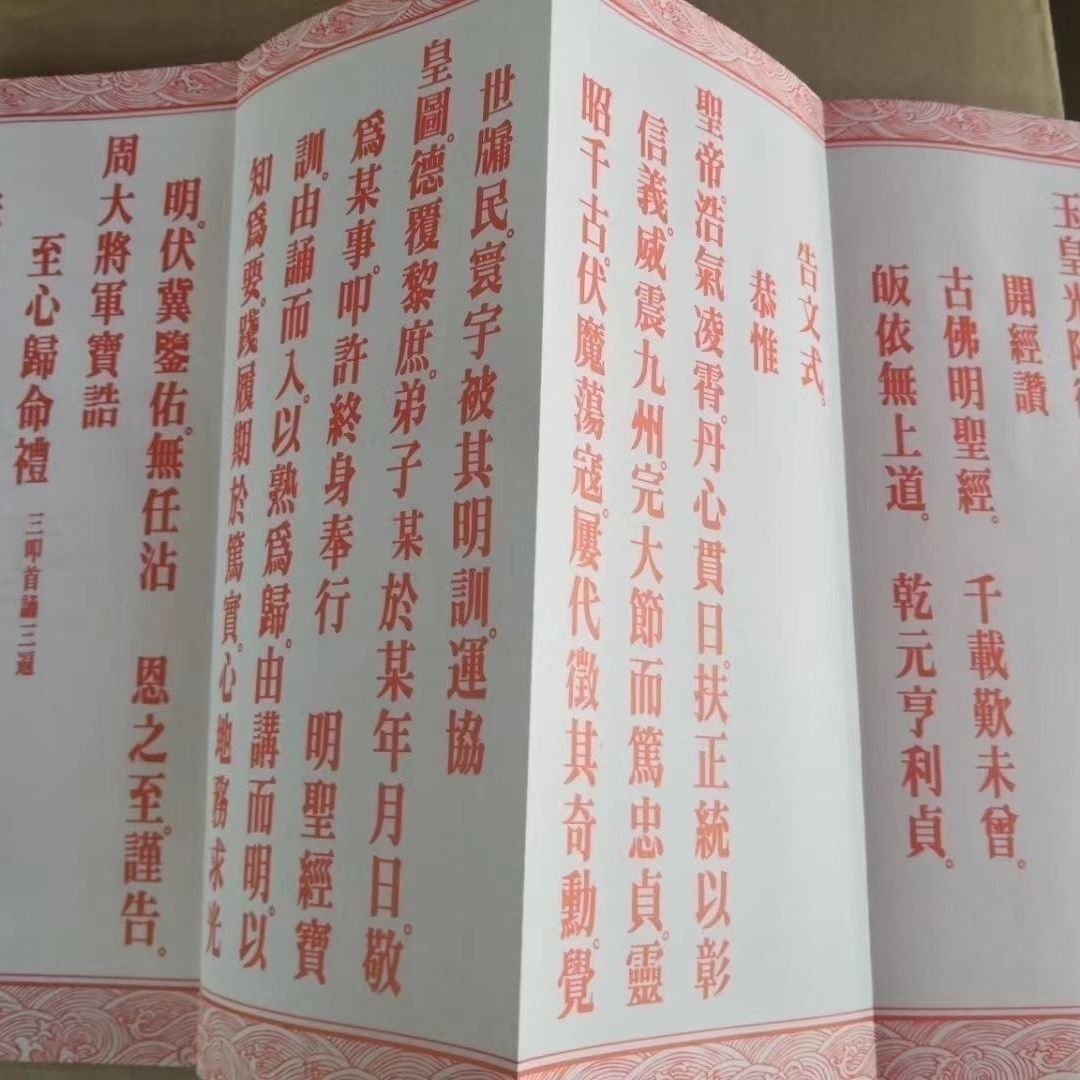 玉皇光
開經讚
古佛明聖經。 千載歎未曾。
皈依無上道。 乾元亨利貞。
告文式。
恭惟
聖帝。浩氣凌霄。丹心貫日。扶正統以彰
信義。威震九州。完大節而篤忠貞。靈
昭千古。伏魔蕩寇。屢代徵其奇勳。覺
世牖民。寰宇被其明訓。運協
皇圖。德覆黎庶。弟子某於某年月日。敬
爲某事。叩許終身奉行 明聖經寶
訓。由誦而入。以熟爲歸。由講而明。以
知爲要。踐履期於篤實。心地務求光
明。伏冀鑒佑。無任沾 恩之至。謹告。
周大將軍寶誥
至心歸命禮 三叩首誦三遍